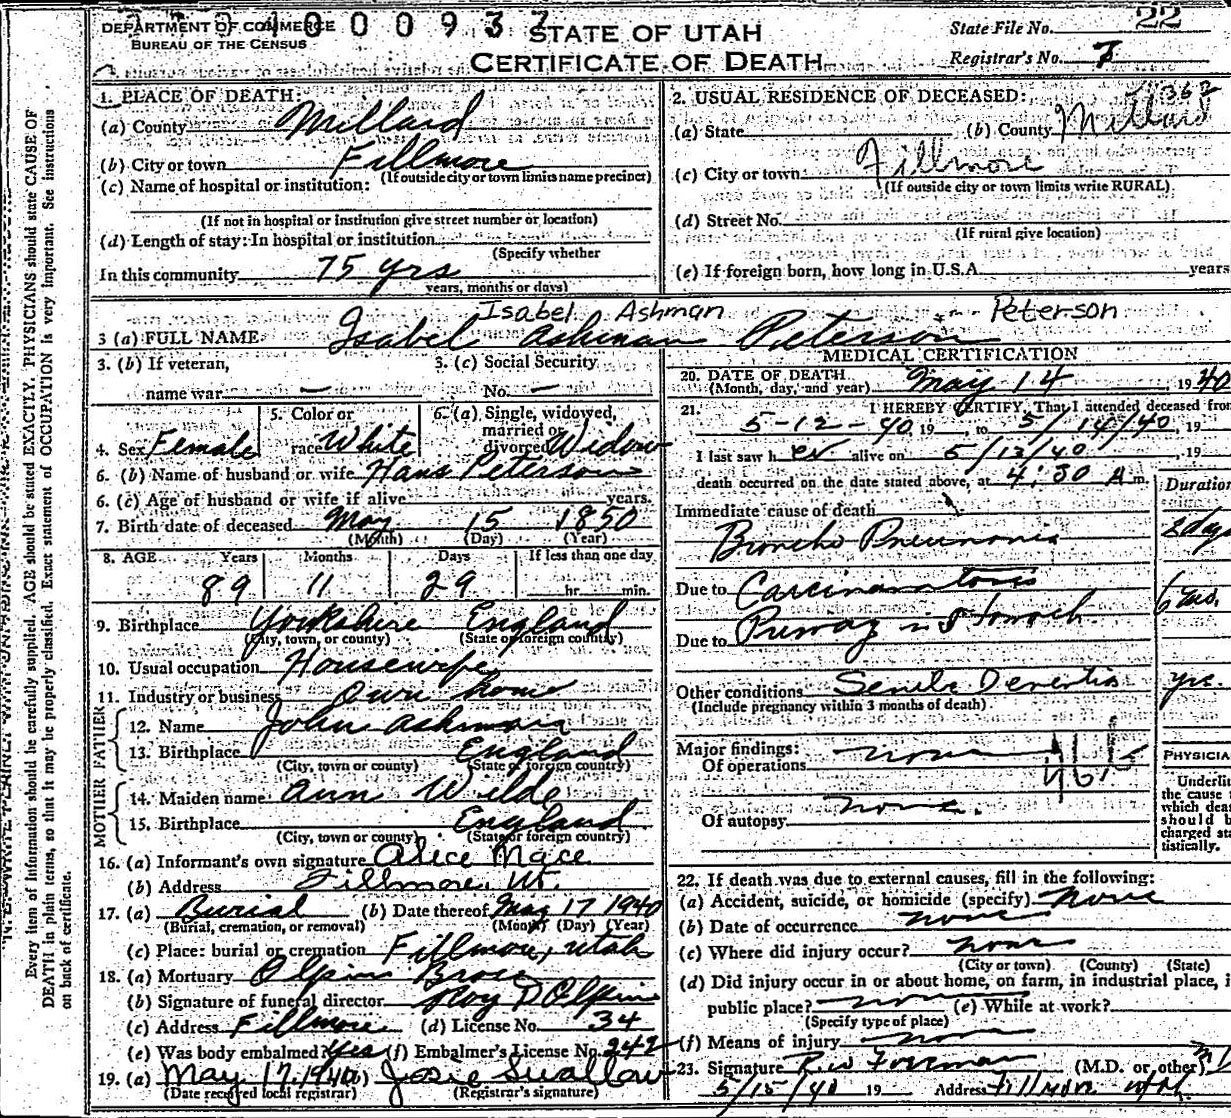 DEPARTMENT OF COMMERCE
BUREAU OF THE CENSUS
STATE OF UTAH
CERTIFICATE OF DEATH
State File No. 22
Registrar's No. 7
1. PLACE OF DEATH:
(a) County Millard
(b) City or town Fillmore
(If outside city or town limits name precinct)
(c) Name of hospital or institution:
(If not in hospital or institution give street number or location)
(d) Length of stay: In hospital or institution
(Specify whether
In this community 75 yrs
years, months or days)
2. USUAL RESIDENCE OF DECEASED:
(a) State (b) County Millard
(c) City or town Fillmore
(If outside city or town limits write RURAL)
(d) Street No.
(If rural give location)
(e) If foreign born, how long in U.S.A. years
Isabel Ashman Peterson
3 (a) FULL NAME Isabel Ashman Peterson
3. (b) If veteran,
name war —
3. (c) Social Security
No. —
4. Sex Female
5. Color or
race White
6. (a) Single, widowed,
married or
divorced Widow
6. (b) Name of husband or wife Hans Peterson
6. (c) Age of husband or wife if alive years.
7. Birth date of deceased May 15 1850
(Month) (Day) (Year)
8. AGE Years Months Days If less than one day
89 11 29 hr. min.
9. Birthplace Yorkshire England
(City, town, or county) (State or foreign country)
10. Usual occupation Housewife
11. Industry or business Own home
FATHER
12. Name John Ashman
13. Birthplace England
(City, town or county) (State or foreign country)
MOTHER
14. Maiden name Ann Wilde
15. Birthplace England
(City, town or county) (State or foreign country)
16. (a) Informant's own signature Alice Mace
(b) Address Fillmore, Ut.
17. (a) Burial (b) Date thereof May 17 1940
(Burial, cremation, or removal) (Month) (Day) (Year)
(c) Place: burial or cremation Fillmore, Utah
18. (a) Mortuary Olpin Bros
(b) Signature of funeral director Roy P Olpin
(c) Address Fillmore (d) License No. 34
(e) Was body embalmed? Yes (f) Embalmer's License No. 242
19. (a) May 17, 1940 (b) Josie Swallow
(Date received local registrar) (Registrar's signature)
MEDICAL CERTIFICATION
20. DATE OF DEATH
(Month, day, and year) May 14, 1940
21. I HEREBY CERTIFY, That I attended deceased from
5-12-40 19 to 5/14/40, 19
I last saw her alive on 5/13/40 19
death occurred on the date stated above, at 4:30 A m.
Duration
Immediate cause of death
Broncho Pneumonia 2 days
Due to Carcinomatosis
Due to Primary in Stomach
Other conditions Senile Dementia yrs.
(Include pregnancy within 3 months of death)
Major findings:
Of operations none
Of autopsy none.
PHYSICIA
Underli
the cause
which dea
should b
charged sta
tistically.
22. If death was due to external causes, fill in the following:
(a) Accident, suicide, or homicide (specify) None
(b) Date of occurrence none
(c) Where did injury occur? none
(City or town) (County) (State)
(d) Did injury occur in or about home, on farm, in industrial place, i
public place? none (e) While at work?
(Specify type of place)
(f) Means of injury none
23. Signature (M.D. or other)
5/15/40 19 Address Fillmore Utah.
Every item of Information should be carefully supplied. AGE should be stated EXACTLY. PHYSICIANS should state CAUSE OF
DEATH in plain terms, so that it may be properly classified. Exact statement of OCCUPATION is very important. See instructions
on back of certificate.